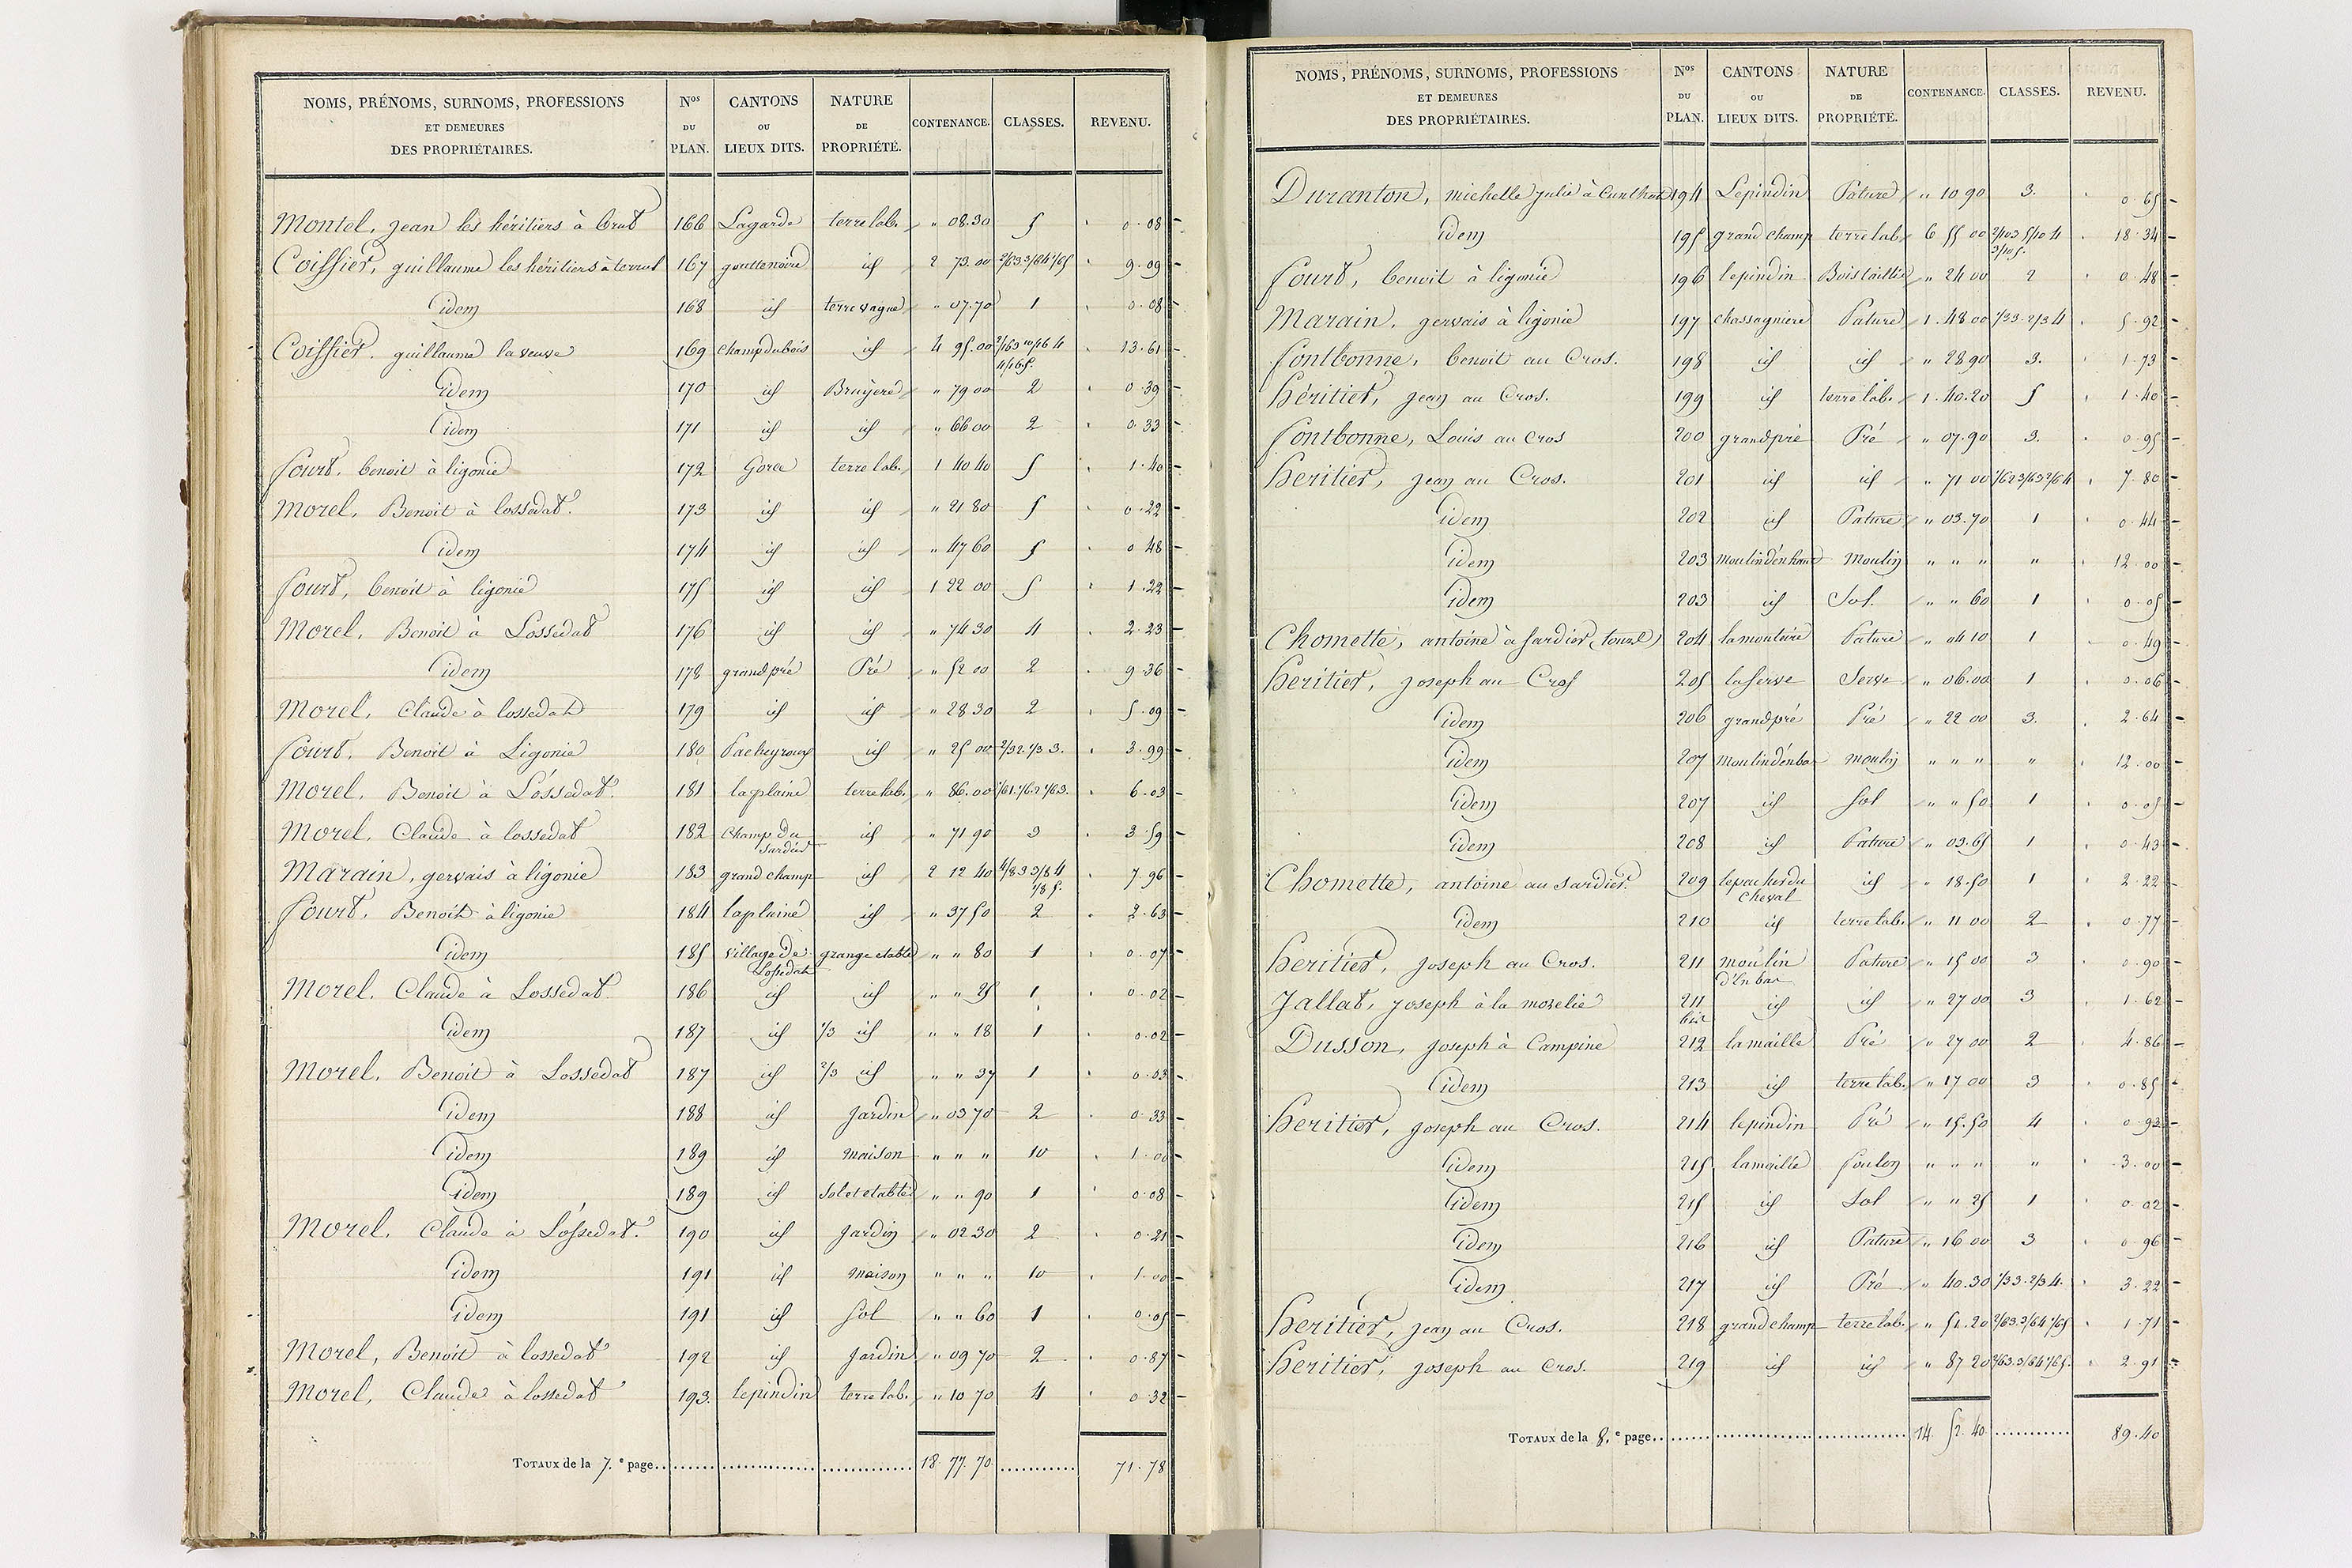 NOMS, PRÉNOMS, SURNOMS, PROFESSIONS ET DEMEURES DES PROPRIÉTAIRES. Nos DU PLAN. CANTONS OU LIEUX DITS. NATURE DE PROPRIÉTÉ. CONTENANCE. CLASSES. REVENU.
Montel, jean les héritiers à 166 Lagarde terre lab. " 08.30 5 0.08
Coiffier, guillaume les héritiers à 167 gouttenoire id 2 73.00 2/6 3 3/6 4 1/6 5 9.09
idem 168 id terre vague " 07.70 1 0.08
Coiffier. guillaume la veuve 169 champ dubois id 4 95.00 2/16 3 10/16 4 4/16 5. 13.61
idem 170 id Bruyere " 79 00 2 0.39
idem 171 id id " 66 00 2 0.33
fourt. benoit à ligonie 172 Goree terre lab. 1 40 40 5 1.40
Morel, Benoit à lossedat. 173 id id " 21 80 5 0.22
idem 174 id id " 47 60 5 0 48
fourt, benoit à ligonie 175 id id 1 22 00 5 1.22
Morel, Benoit à Lossedat 176 id id " 74 30 4 2.23
idem 178 grand pré Pré " 52 00 2 9.36
Morel, Claude à lossedat 179 id id " 28 30 2 5.09
fourt. Benoit à Ligonie 180 Pacheyroux id " 25 00 2/3 2. 1/3 3. 3.99
Morel, Benoit à Lossedat. 181 la plaine terre lab. " 86.00 6.03
Morel, Claude à lossedat 182 Champ du Sardier id " 71 90 3 3.59
Marain, gervais à ligonie 183 grand champ id 2 12 40 4/8 3 3/8 4 1/8 5. 7.96
fourt. Benoit à ligonie 184 la plaine id " 37 50 2 2.63
idem 185 village de Lossedat grange etable " " 80 1 0.07
Morel. Claude à Lossedat 186 id id " " 25 1 0.02
idem 187 id 1/3 id " " 18 1 0.02
Morel. Benoit à Lossedat 187 id 2/3 id " " 37 1 0.03
idem 188 id jardin " 03 70 2 0.33
idem 189 id maison " " " 10 1.00
idem 189 id sol et etable " " 90 1 0.08
Morel. Claude à Lossedat. 190 id jardin " 02 30 2 0.21
idem 191 id maison " " " 10 1.00
idem 191 id sol " " 60 1 0.05
Morel, Benoit à lossedat 192 id jardin " 09 70 2 0.87
Morel, Claude à lossedat 193. lepindin terre lab. " 10 70 4 0.32
TOTAUX de la 7.e page 18. 77. 70 71.78
NOMS, PRÉNOMS, SURNOMS, PROFESSIONS ET DEMEURES DES PROPRIÉTAIRES. Nos DU PLAN. CANTONS OU LIEUX DITS. NATURE DE PROPRIÉTÉ. CONTENANCE. CLASSES. REVENU.
Duranton, michelle julie à Cunlhat 194 Lepindin Pature " 10 90 3. 0.65
idem 195 grand champ terre lab. 6 55 00 2/10 3 5/10 4 3/10 5. 18.34
fourt, benoit à ligonie 196 lepindin Bois taillis " 24 00 2 0.48
Marain. gervais à ligonie 197 chassagniere Pature 1.48.00 1/3 3. 2/3 4 5.92
fontbonne, benoit au Cros. 198 id id " 28 90 3. 1.73
héritier, jean au Cros. 199 id terre lab. 1.40.20 5 1.40
fontbonne, Louis au Cros 200 grand pré Pré " 07.90 3. 0.95
heritier, jean au Cros. 201 id id " 71 00 1/6 2 3/6 3 2/6 4 7.80
idem 202 id Pature " 03.70 1 0.44
idem 203 moulin d'en haut Moulin " " " " 12.00
idem 203 id Sol. " " 60 1 0.05
Chomette, antoine à sardier 204 Pature " 04 10 1 0.49
heritier, joseph au Cros 205 la Serve Serve " 06.00 1 0.06
idem 206 grand pré Pré " 22 00 3. 2.64
idem 207 moulin d'en bas moulin " " " " 12.00
idem 207 id sol " " 50 1 0.05
idem 208 id Pature " 03.65 1 0.43
Chomette, antoine au sardier. 209 cheval id " 18.50 1 2.22
idem 210 id terre lab. " 11 00 2 0.77
heritier, joseph au Cros. 211 moulin d'En bas Pature " 15 00 3 0.90
Jallat, joseph à la morelie 211 bis id id " 27 00 3 1.62
Dusson, joseph à Campine 212 la maille Pré " 27 00 2 4.86
idem 213 id terre lab. " 17 00 3 0.85
heritier, joseph au Cros. 214 lepindin Pré " 15.50 4 0.93
idem 215 la maille foulon " " " " 3.00
idem 215 id Sol " " 25 1 0.02
idem 216 id Pature " 16 00 3 0.96
idem 217 id Pré " 40.30 1/3 3. 2/3 4. 3.22
heritier, jean au Cros. 218 grand champ terre lab. " 51.20 2/6 3. 3/6 4 1/6 5 1.71
heritier, joseph au Cros. 219 id id " 87 20 2/6 3. 3/6 4 1/6 5. 2.91
TOTAUX de la 8.e page 14. 52. 40 89.40